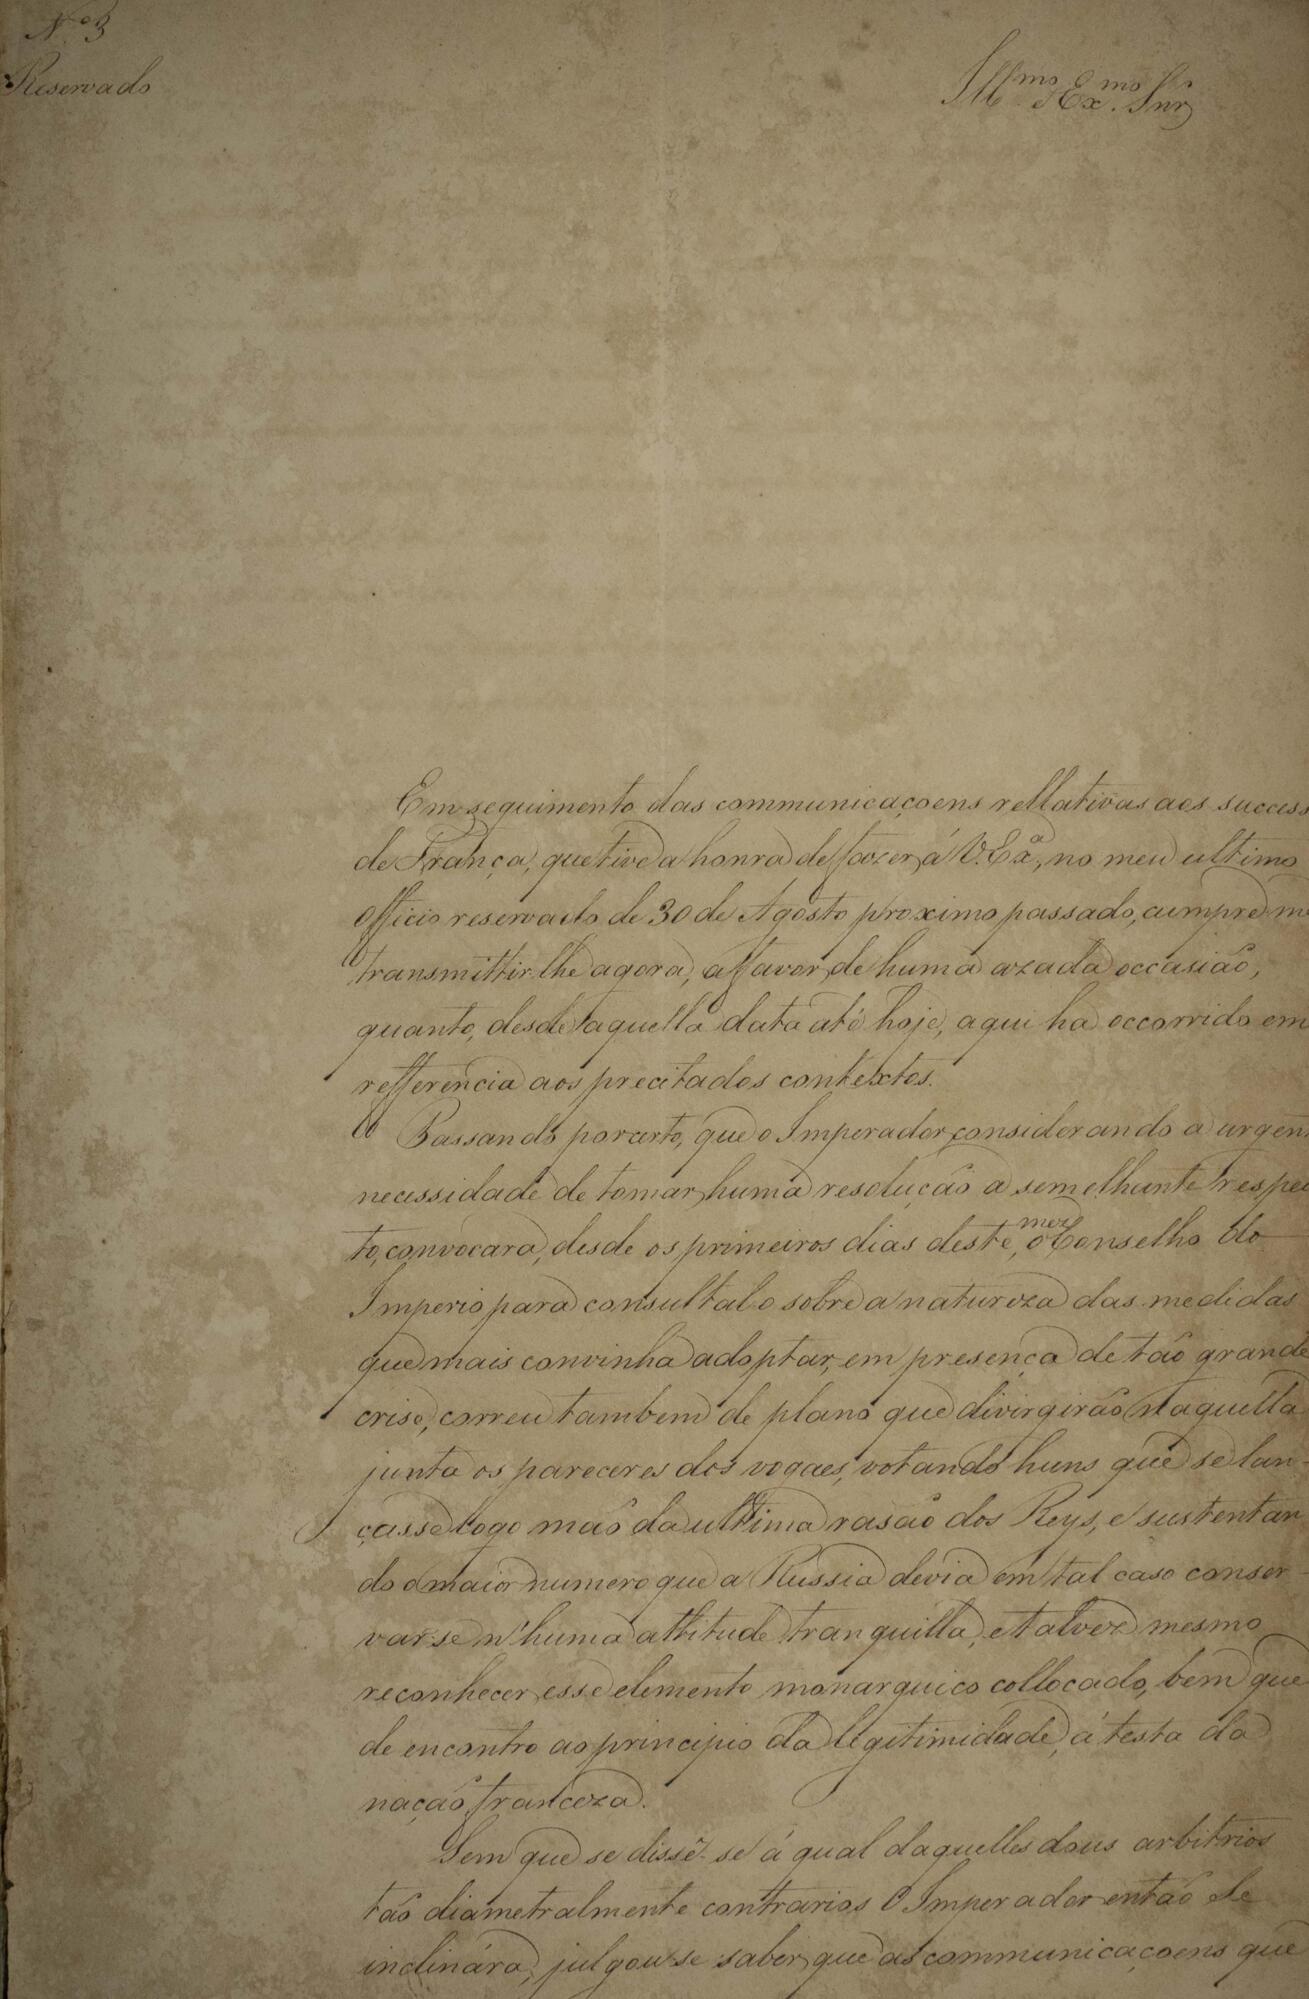 Nº 3
Reservado
Illmo. e Exmo. Snr
Em seguimento das communicaçoens rellativas aos success
de França, que tive a honra de fazer á V. Exª, no meu ultimo
Officio reservado de 30 de Agosto proximo passado, cumpre me
transmittir-lhe agora, a favor de huma azada occasião,
quanto, desde aquella data até hoje, aqui ha occorrido em
refferencia aos precitados contextos.
Passando por certo, que o Imperador, considerando a urgen
necessidade de tomar huma resolução a semelhante respei
to, convocara, desde os primeiros dias deste mez, o Conselho do
Imperio para consultal-o sobre a natureza das medidas
que mais convinha adoptar, em presença de tão grande
crise, correu tambem de plano que divirgirão n'aquella
junta os pareceres dos vogaes, votando huns que se lan-
çasse logo mão da ultima rasão dos Reys, e sustentan
do o maior numero que a Russia devia em tal caso conser-
var-se n'huma attitude tranquilla, e talvez mesmo
reconhecer esse elemento monarquico collocado, bem que
de encontro ao principio da legitimidade, á testa da
nação franceza.
Sem que se dissé-se á qual daquelles dous arbitrios
tão diametralmente contrarios O Imperador então se
inclinára, julgou-se saber, que as communicaçoens que